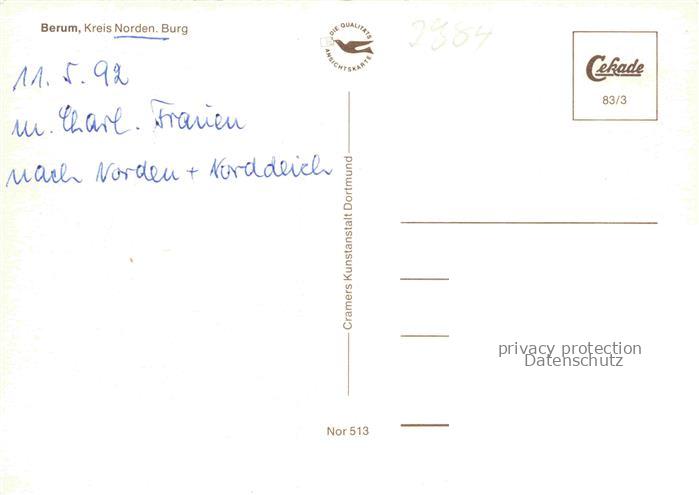 Berum, Kreis Norden. Burg
DIE QUALITÄTS
ANSICHTSKARTE
2984
Cekade
83/3
11. 5. 92
m. Charl. Frauen
nach Norden + Norddeich
Cramers Kunstanstalt Dortmund
privacy protection
Datenschutz
Nor 513